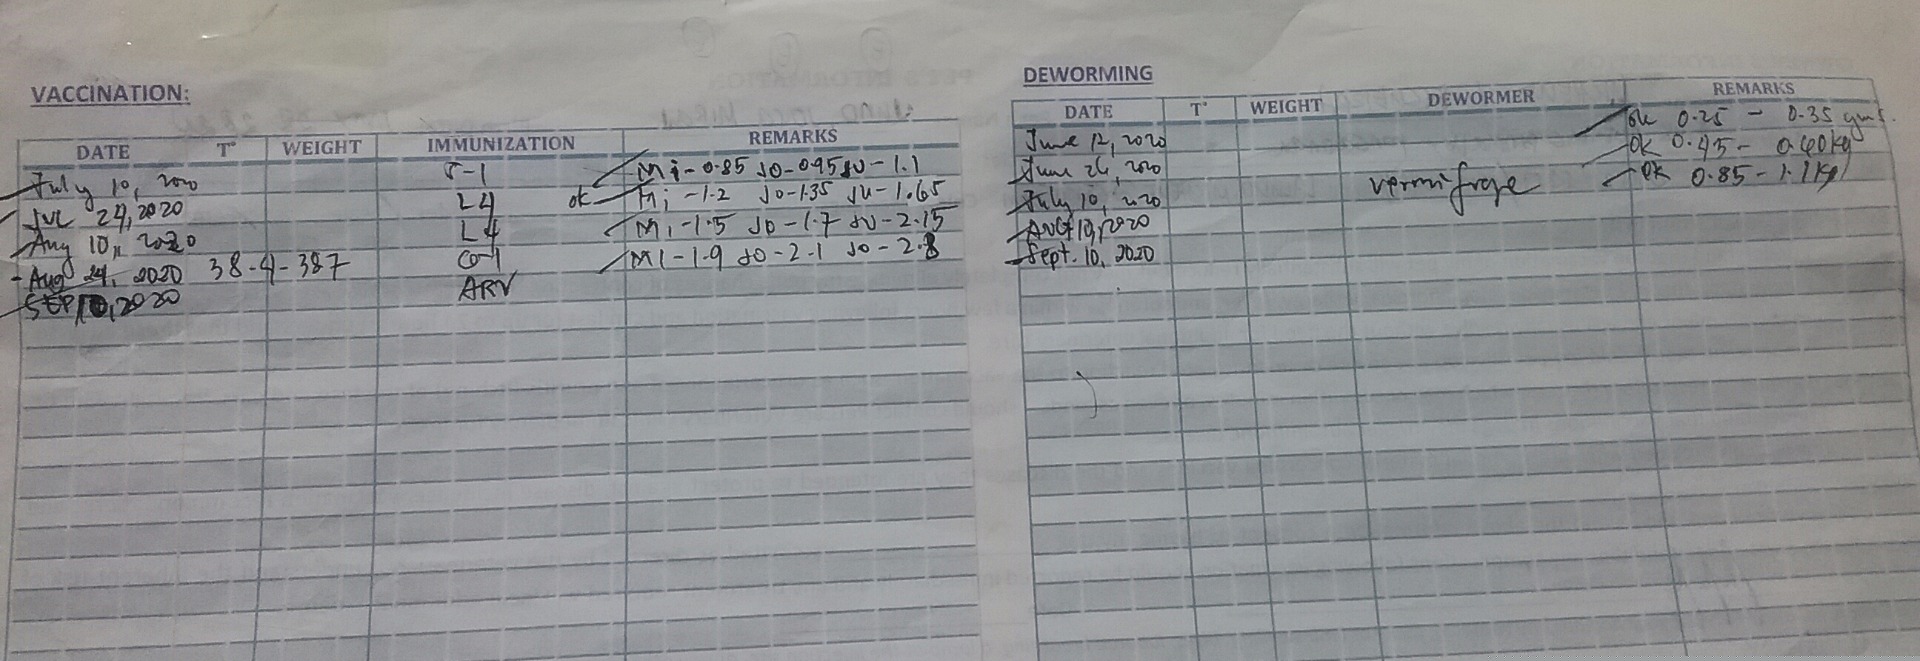 VACCINATION:
DATE T° WEIGHT IMMUNIZATION REMARKS
July 10, 2020 5-1 Mi-0.85 Jo-0.95 Ju-1.1
Jul 24, 2020 L4 ok Mi-1.2 Jo-1.35 Ju-1.65
Aug 10, 2020 L4 Mi-1.5 Jo-1.7 Ju-2.15
Aug 24, 2020 38-4-387 Co-1 Mi-1.9 Jo-2-1 Jo-2.8
SEP 10, 2020 ARV
DEWORMING
DATE T° WEIGHT DEWORMER REMARKS
June 12, 2020 ok 0.25 - 0.35 gms.
June 26, 2020 ok 0.45 - 0.40kg
July 10, 2020 vermifroge ok 0.85 - 1.1kg
AUG 10, 2020
Sept. 10, 2020